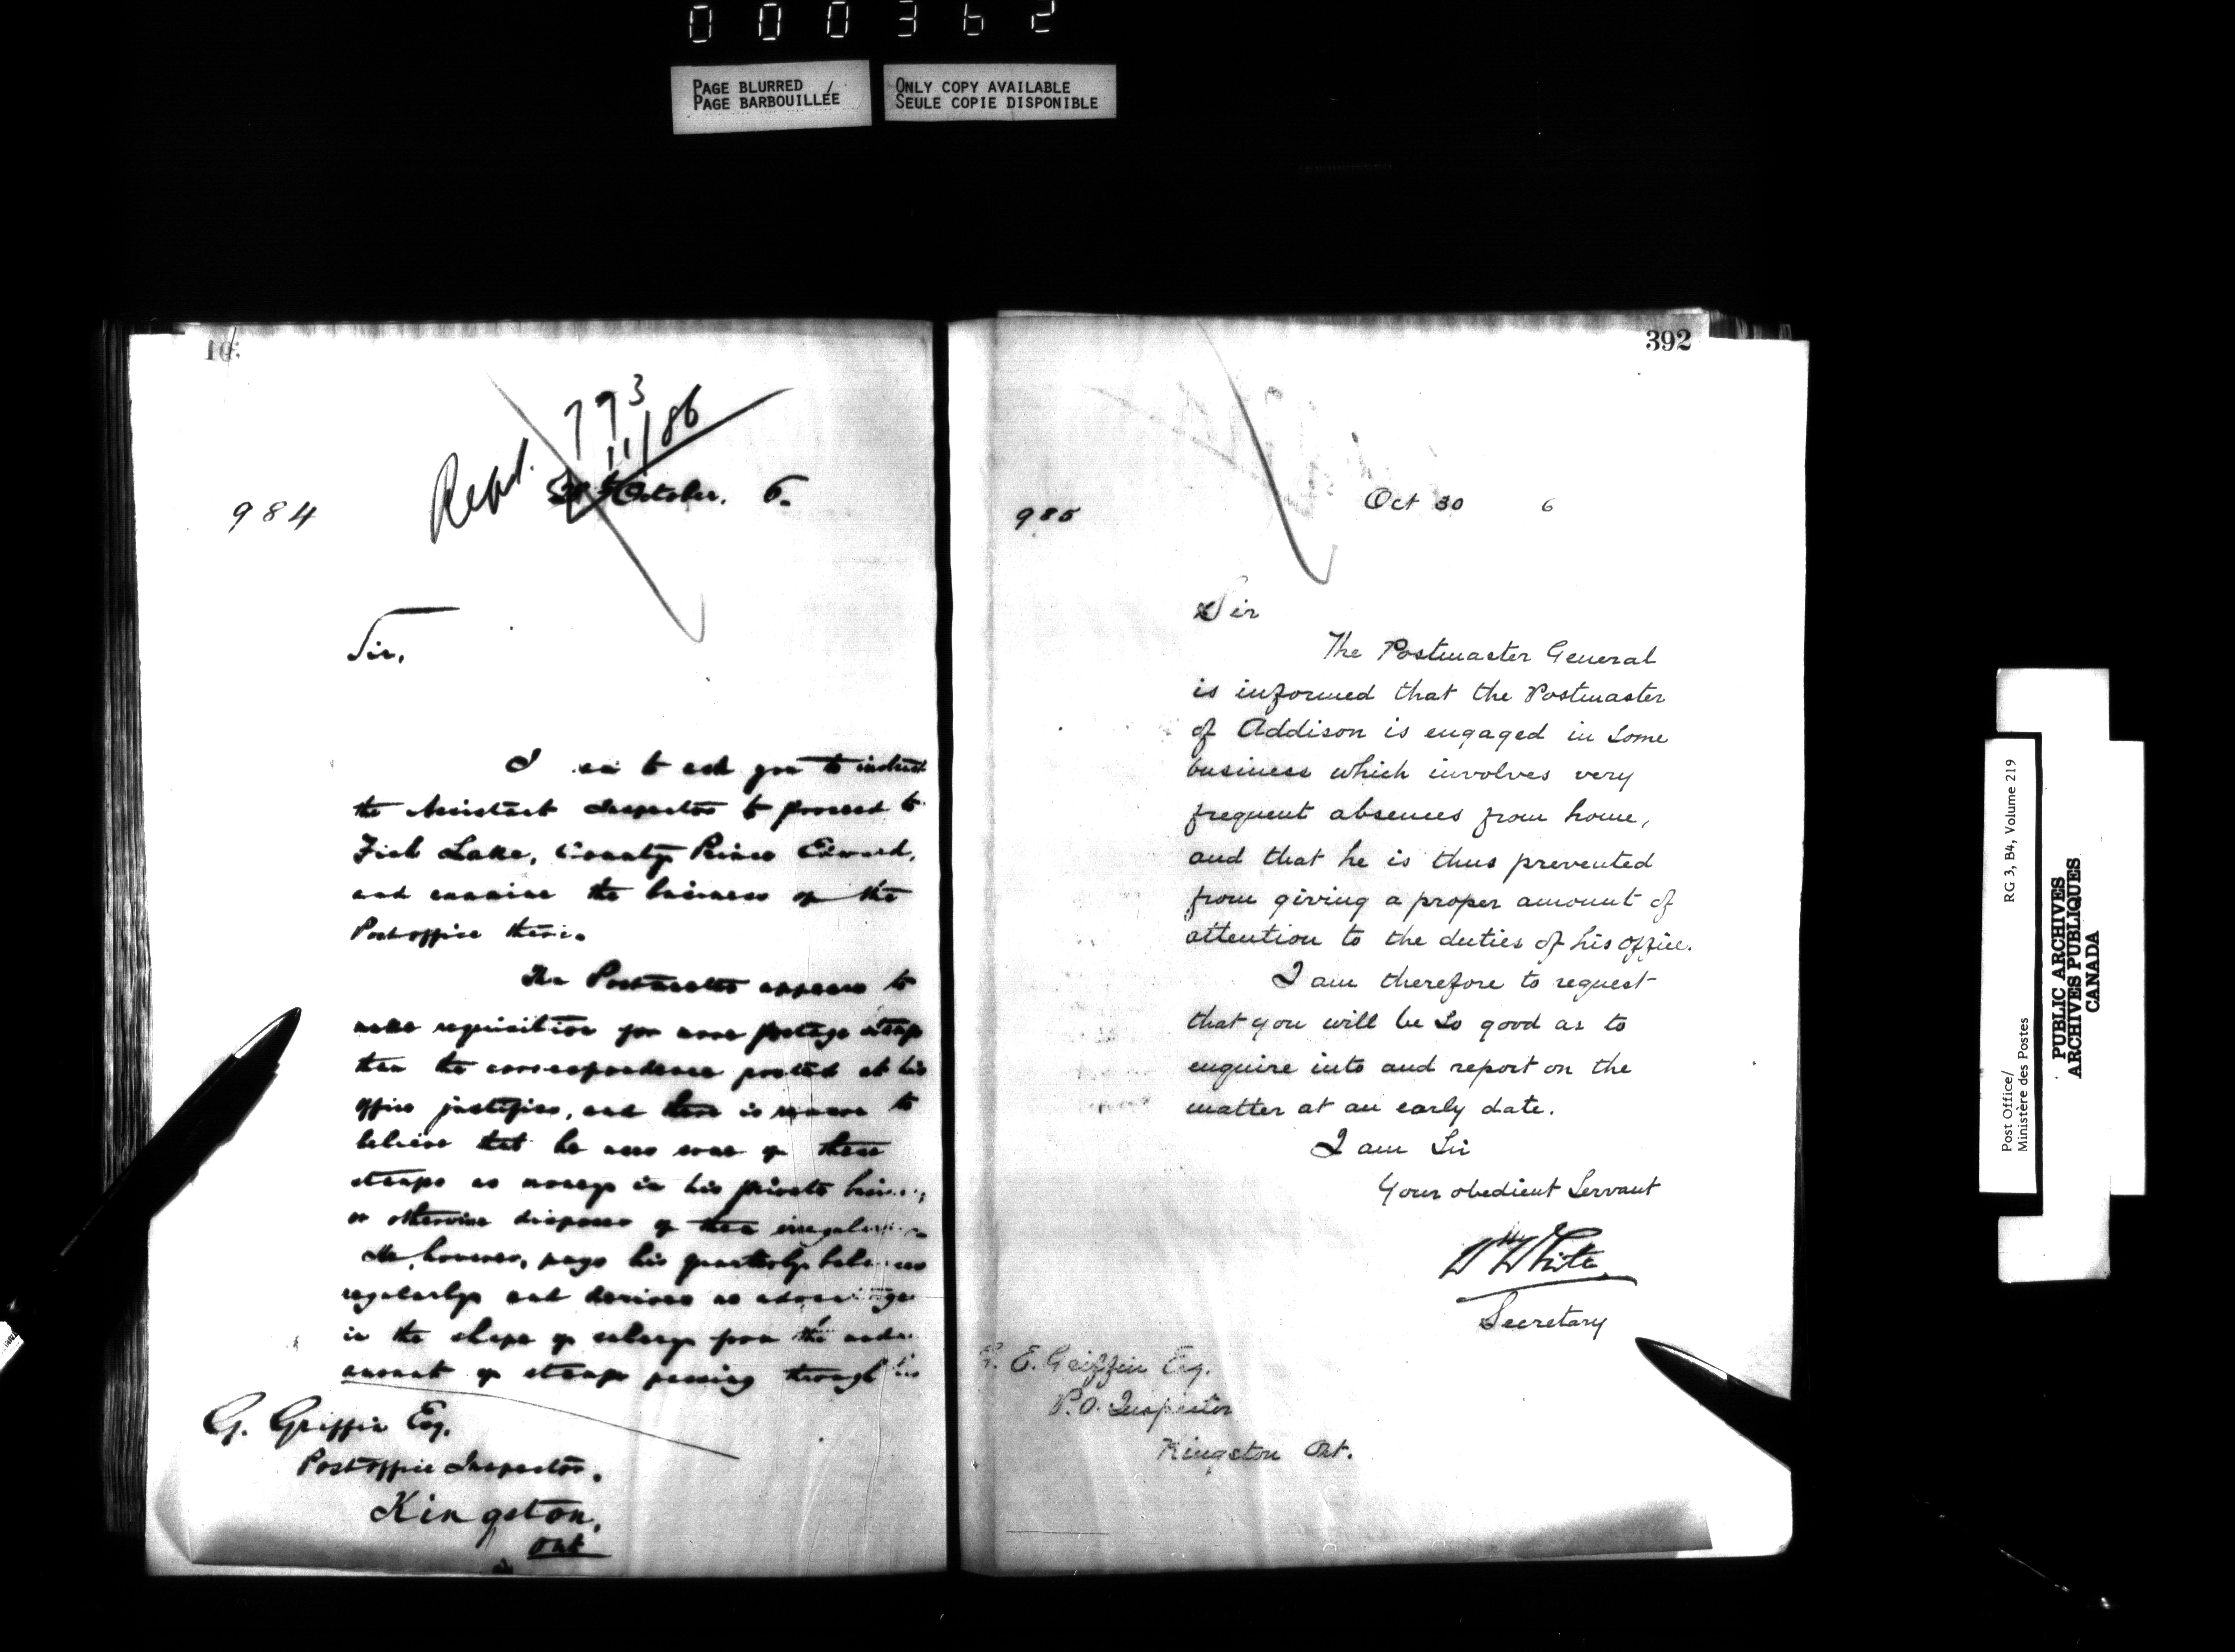 000362
PAGE BLURRED
PAGE BARBOUILLÉE
ONLY COPY AVAILABLE
SEULE COPIE DISPONIBLE
793
11/86
Repd.
October. 6.
984
Sir,
I am to ask you to instruct
the Assistant Inspector to proceed to
Fish Lake, County Prince Edward,
and examine the business of the
Postoffice there.
The Postmaster appears to
make requisition for more postage stamps
than the correspondence posted at his
office justifies, and there is reason to
believe that he uses some of these
stamps as money in his private
or otherwise disposes of them
He, however, pays his quarterly balances
regularly and derives no advantage
in the shape of salary from the
amount of stamps passing through his
G. Griffin Esq.
Postoffice Inspector.
Kingston.
Ont
392
Oct 30 6
985
Sir
The Postmaster General
is informed that the Postmaster
of Addison is engaged in some
business which involves very
frequent absences from home,
and that he is thus prevented
from giving a proper amount of
attention to the duties of his office.
I am therefore to request
that you will be so good as to
enquire into and report on the
matter at an early date.
I am Sir
Your obedient Servant
Wm White
Secretary
G. E. Griffin Esq.
P.O. Inspector
Kingston Ont.
Post Office/
Ministère des Postes
RG 3, B4, Volume 219
PUBLIC ARCHIVES
ARCHIVES PUBLIQUES
CANADA